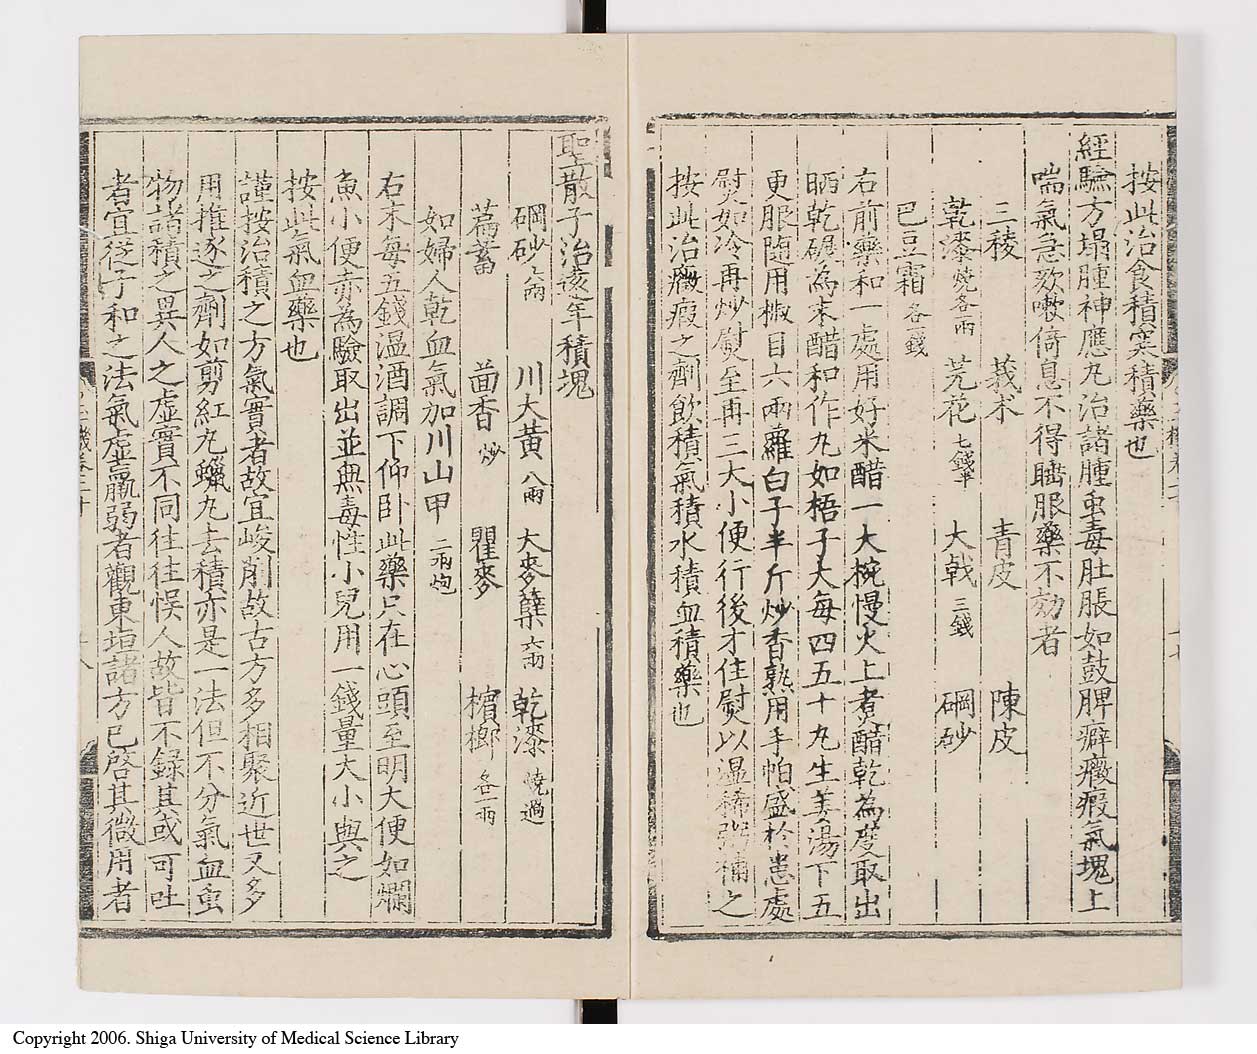 按此治食積寒積藥也
經驗方塌腫神應丸治諸腫䖝毒肚脹如鼓脾癖癥瘕氣塊上
喘氣急欬嗽倚息不得睡服藥不効者
三稜 莪朮 青皮 陳皮
乾漆燒各一兩 芫花七錢半 大戟三錢 硇砂
巴豆霜各一錢
右前藥和一處用好米醋一大椀慢火上煑醋乾為度取出
晒乾碾為末醋和作丸如梧子大每四五十丸生姜湯下五
更服随用椒目六兩蘿白子半斤炒香熟用手帕盛於患處
熨如冷再炒熨至再三大小便行後才住熨以温稀粥補之
按此治癥瘕之劑飲積氣積水積血積藥也
聖散子治遠年積塊
硇砂六兩 川大黃八兩 大麥蘖六兩 乾漆燒過
萹蓄 茴香炒 瞿麥 檳榔各一兩
如婦人乾血氣加川山甲二兩炮
右末每五錢温酒調下仰卧此藥只在心頭至明大便如爛
魚小便赤為驗取出並無毒性小兒用一錢量大小與之
按此氣血藥也
謹按治積之方氣實者故宜峻削故古方多相聚近世又多
用推逐之劑如剪紅丸蠟丸去積亦是一法但不分氣血䖝
物諸積之異人之虛實不同往往悮人故皆不錄其或可吐
者宜從子和之法氣虛羸弱者觀東垣諸方已啓其微用者